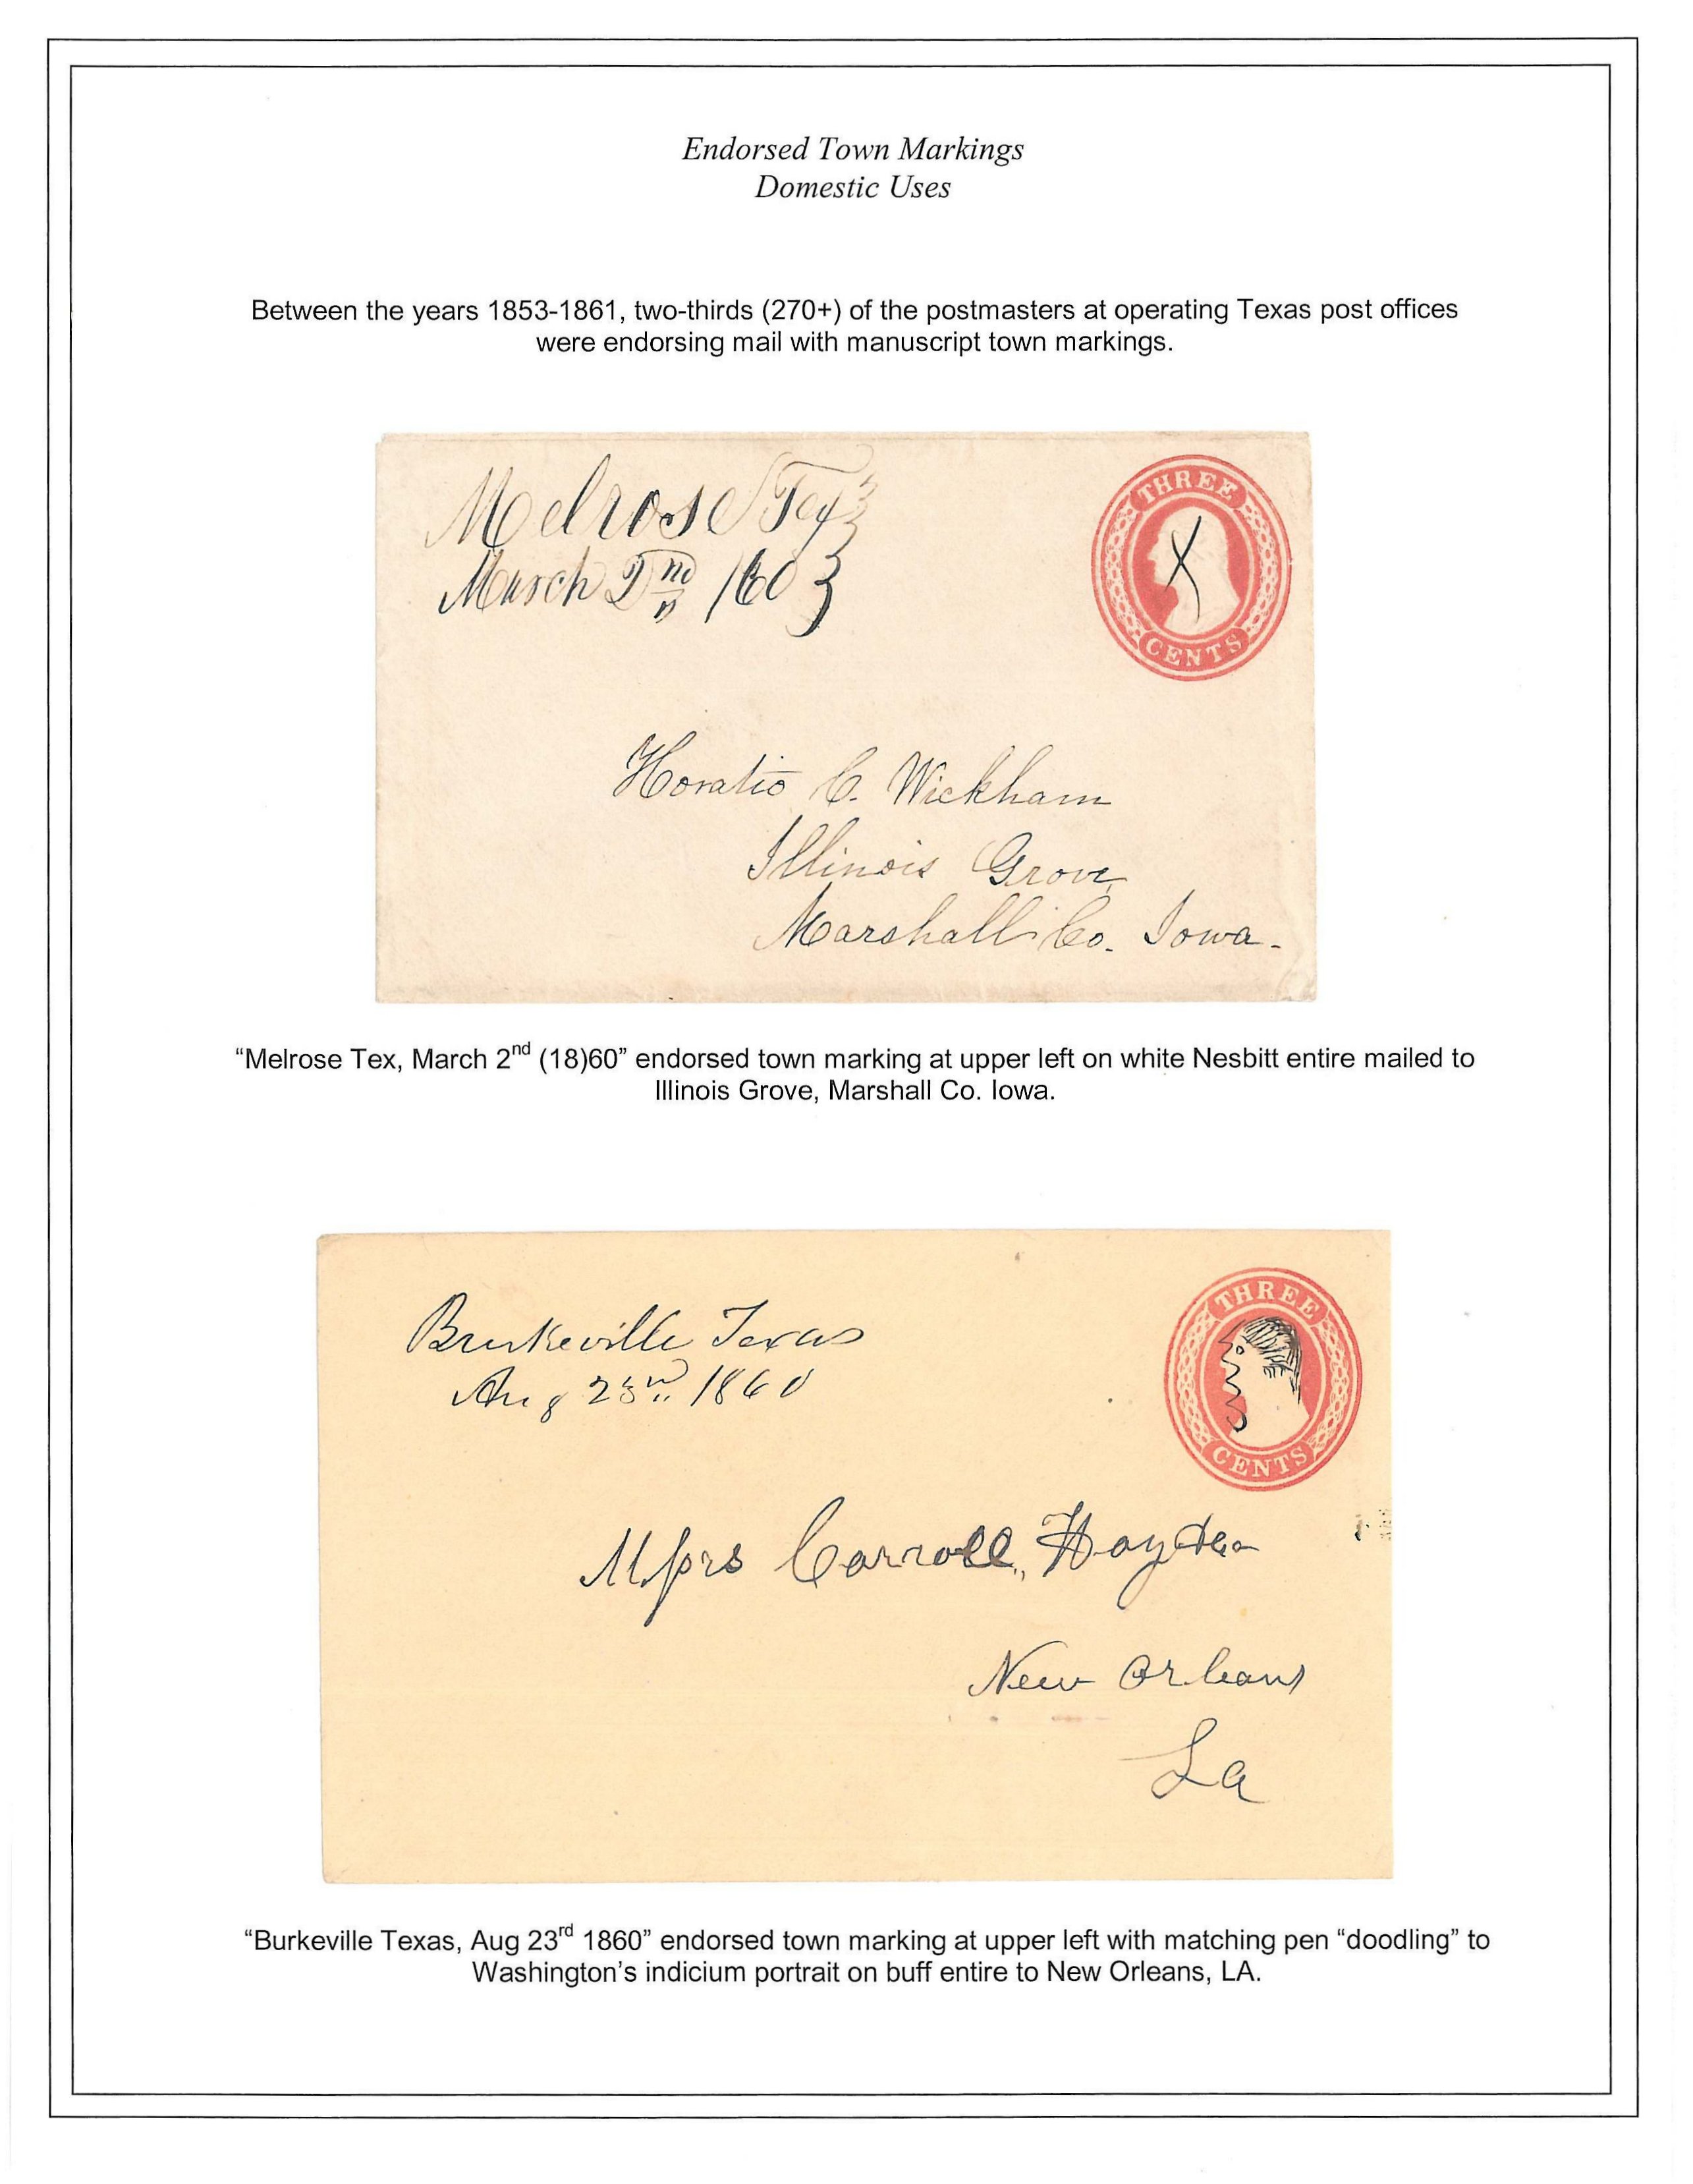 Endorsed Town Markings
Domestic Uses
Between the years 1853-1861, two-thirds (270+) of the postmasters at operating Texas post offices
were endorsing mail with manuscript town markings.
Melrose Tex
March 2nd /60
THREE
CENTS
Horatio C. Wickham
Illinois Grove,
Marshall Co. Iowa.
“Melrose Tex, March 2nd (18)60” endorsed town marking at upper left on white Nesbitt entire mailed to
Illinois Grove, Marshall Co. Iowa.
Burkeville Texas
Aug 23rd 1860
THREE
CENTS
Carroll, Hoy
New Orleans
La
“Burkeville Texas, Aug 23rd 1860” endorsed town marking at upper left with matching pen “doodling” to
Washington’s indicium portrait on buff entire to New Orleans, LA.